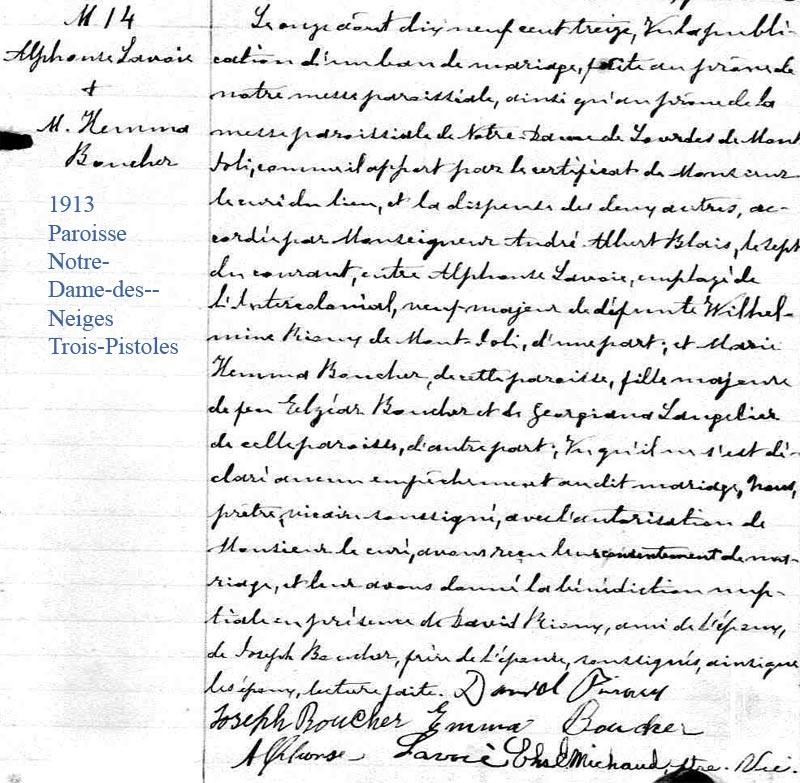 M 14
Alphonse Lavoie
+
M. Hemma
Boucher
1913
Paroisse
Notre-
Dame-des--
Neiges
Trois-Pistoles
Le onze août dix neuf cent treize, Vu la publi-
cation d'un ban de mariage, faite au prône de
notre messe paroissiale, ainsi qu'au prône de la
messe paroissiale de Notre-Dame de Lourdes de Mont
Joli, comme il appert par le certificat de Monsieur
le curé du lieu, et la dispense des deux autres, ac-
cordée par Monseigneur André Albert Blais, le sept
du courant, entre Alphonse Lavoie, employé de
l'Intercolonial, veuf majeur de défunte Wilhel-
mine Rioux de Mont-Joli, d'une part; et Marie
Hemma Boucher, de cette paroisse, fille majeure
de feu Elzéar Boucher et de Georgiana Langelier
de cette paroisse, d'autre part; Vu qu'il ne s'est dé-
claré aucun empêchement au dit mariage, Nous,
prêtre, vicaire soussigné, avec l'autorisation de
Monsieur le curé, avons reçu leur consentement de ma-
riage, et leur avons donné la bénédiction nup-
tiale en présence de David Rioux, ami de l'époux,
de Joseph Boucher, frère de l'épouse, soussignés, ainsi que
les époux, lecture faite. David Rioux
Joseph Boucher Emma Boucher
Alphonse Lavoie Michaud ptre. Vic.